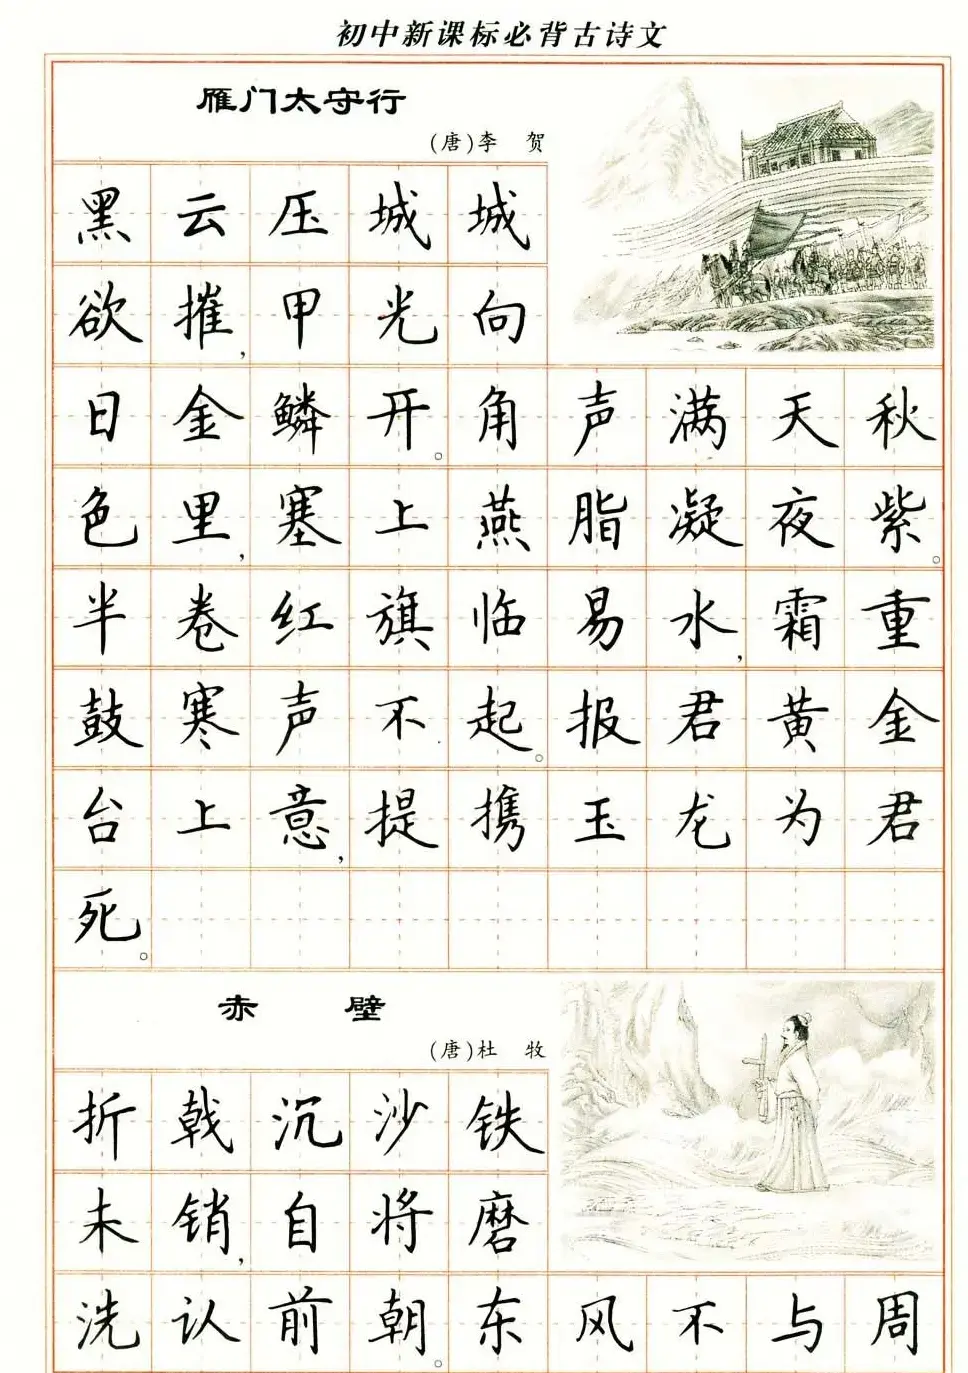 初中新课标必背古诗文
雁门太守行
(唐)李 贺
黑云压城城
欲摧,甲光向
日金鳞开。角声满天秋
色里,塞上燕脂凝夜紫。
半卷红旗临易水,霜重
鼓寒声不起。报君黄金
台上意,提携玉龙为君
死。
赤 壁
(唐)杜 牧
折戟沉沙铁
未销,自将磨
洗认前朝。东风不与周